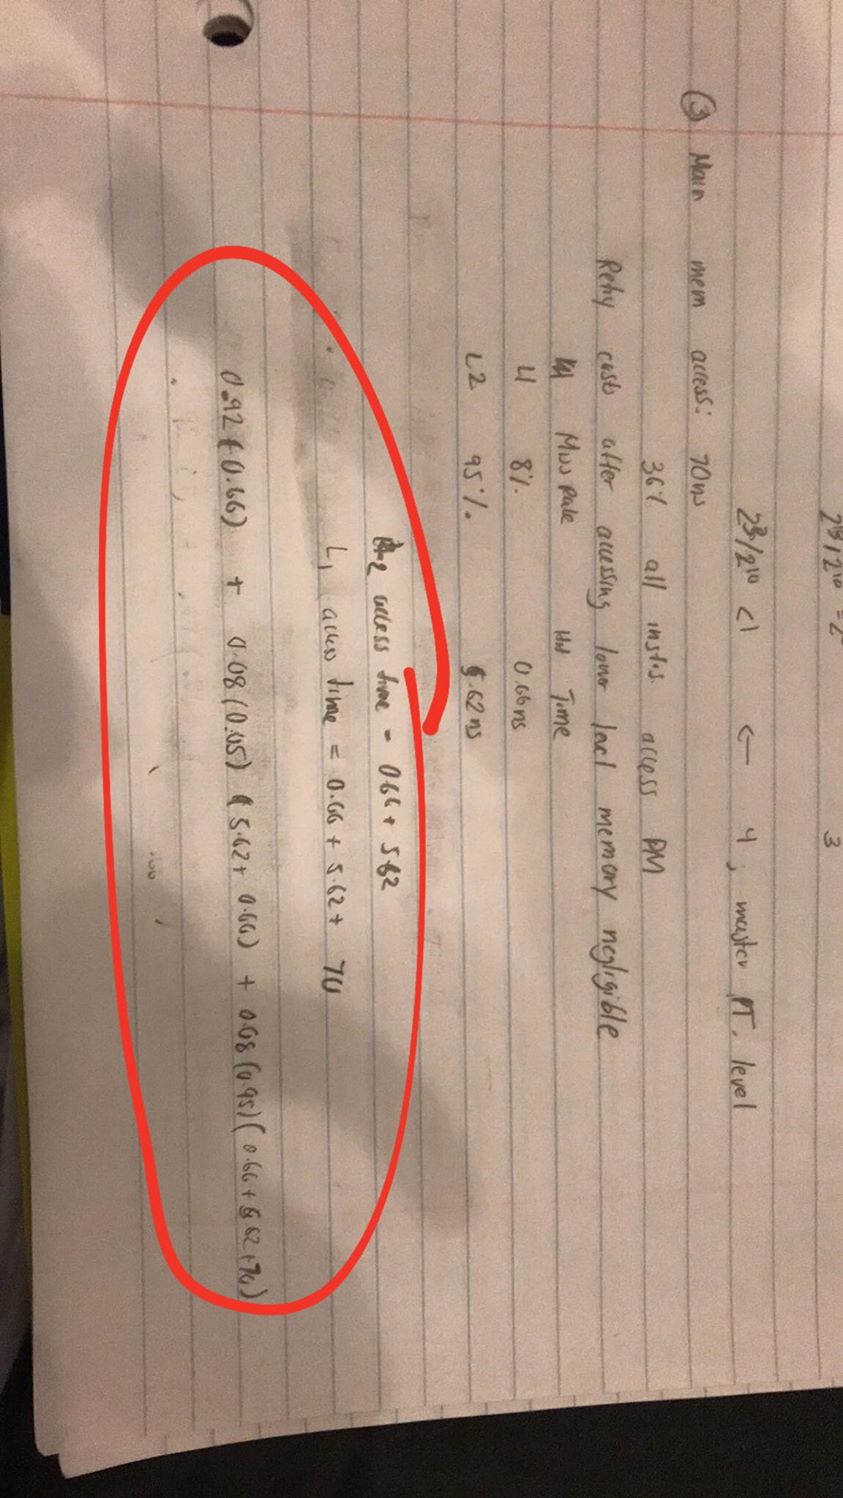 2^10 = 2
3
<1 ← 4 ; master PT. level
③ Main mem access: 70ns
36% all instrs. access DM
Retry costs after accessing lower level memory negligible
Miss Rate Hit Time
L1 8% 0.66ns
L2 95% 5.62ns
access time = 0.66 + 5.62
L1 access time = 0.66 + 5.62 + 70
0.92(0.66) + 0.08(0.05)(5.62 + 0.66) + 0.08(0.95)(0.66 + 5.62 + 70)